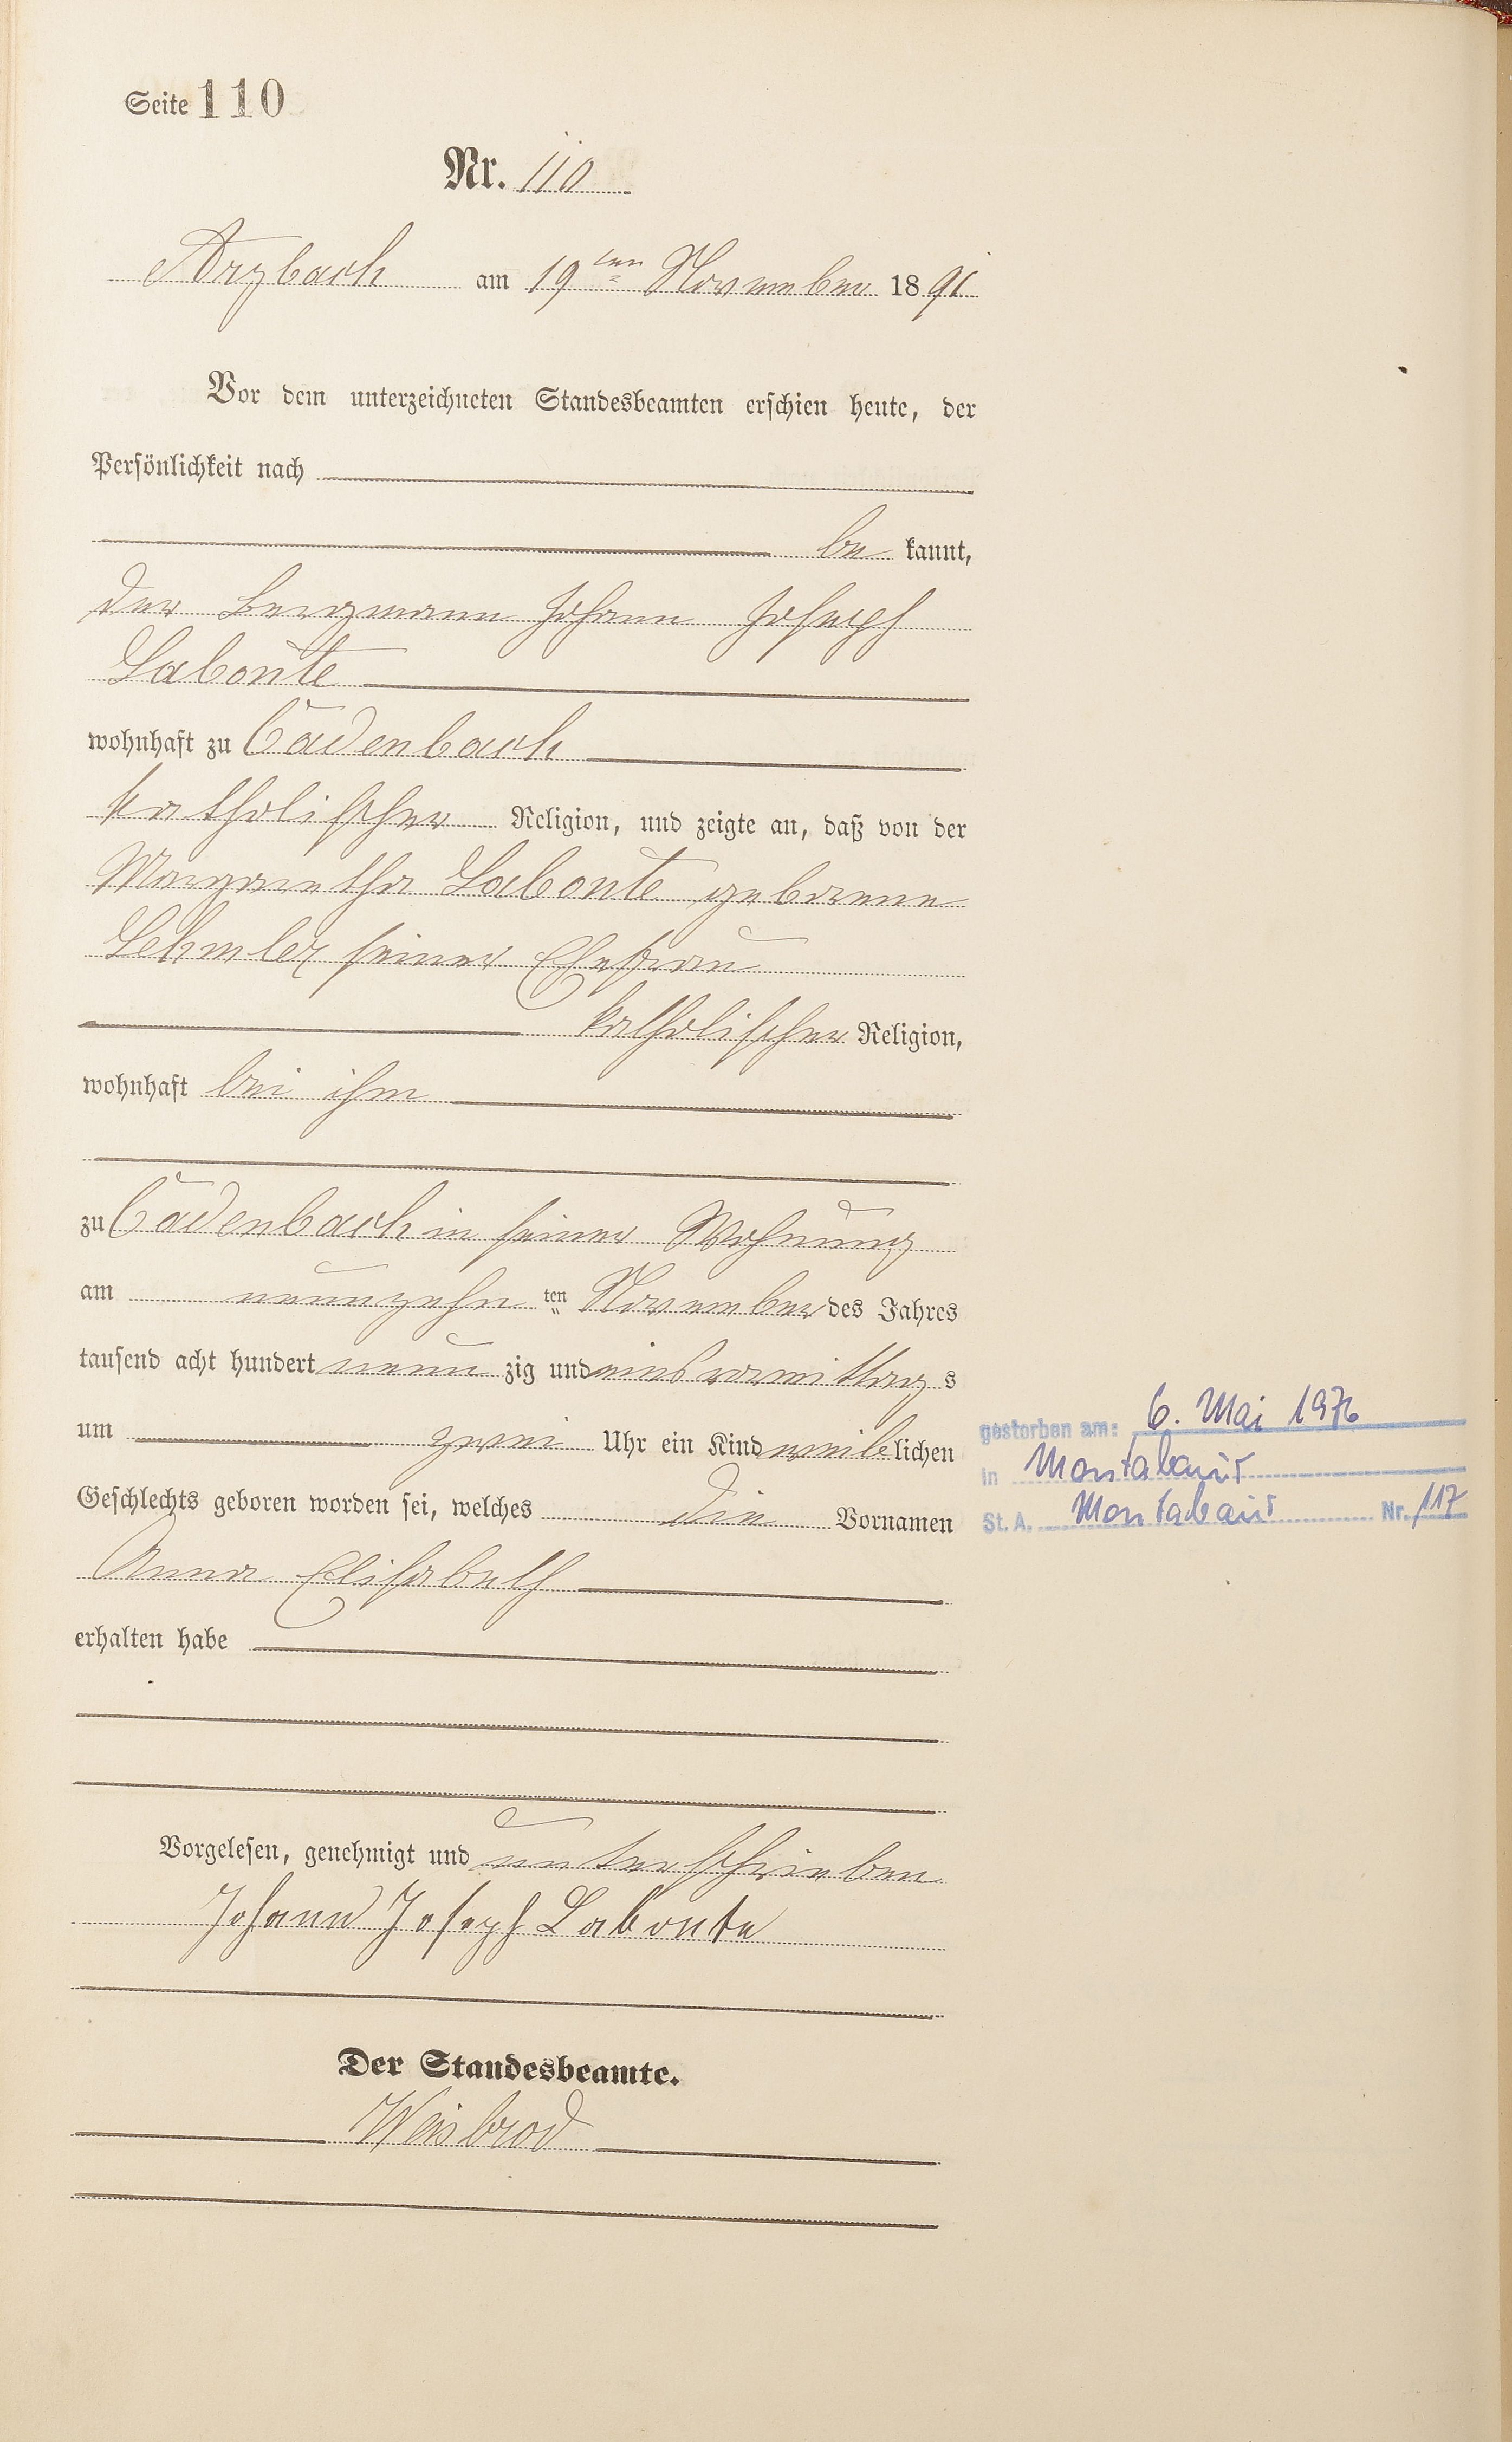 Seite 110
Nr. 110
Arzbach am 19ten November 1891
Vor dem unterzeichneten Standesbeamten erschien heute, der
Persönlichkeit nach
be kannt,
der Bergmann Johann Joseph
Labonte
wohnhaft zu Cadenbach
katholischer Religion, und zeigte an, daß von der
Margaretha Labonte geborene
Lehmler seiner Ehefrau
katholischer Religion,
wohnhaft bei ihm
zu Cadenbach in seiner Wohnung
am neunzehn ten November des Jahres
tausend acht hundert neun zig und eins vormittag s
um zwei Uhr ein Kind weib lichen
Geschlechts geboren worden sei, welches die Vornamen
Anna Elisabeth
erhalten habe
gestorben am: 6. Mai 1976
in Montabaur
St. A. Montabaur Nr. 117
Vorgelesen, genehmigt und unterschrieben
Johann Joseph Labonte
Der Standesbeamte.
Weisbrod